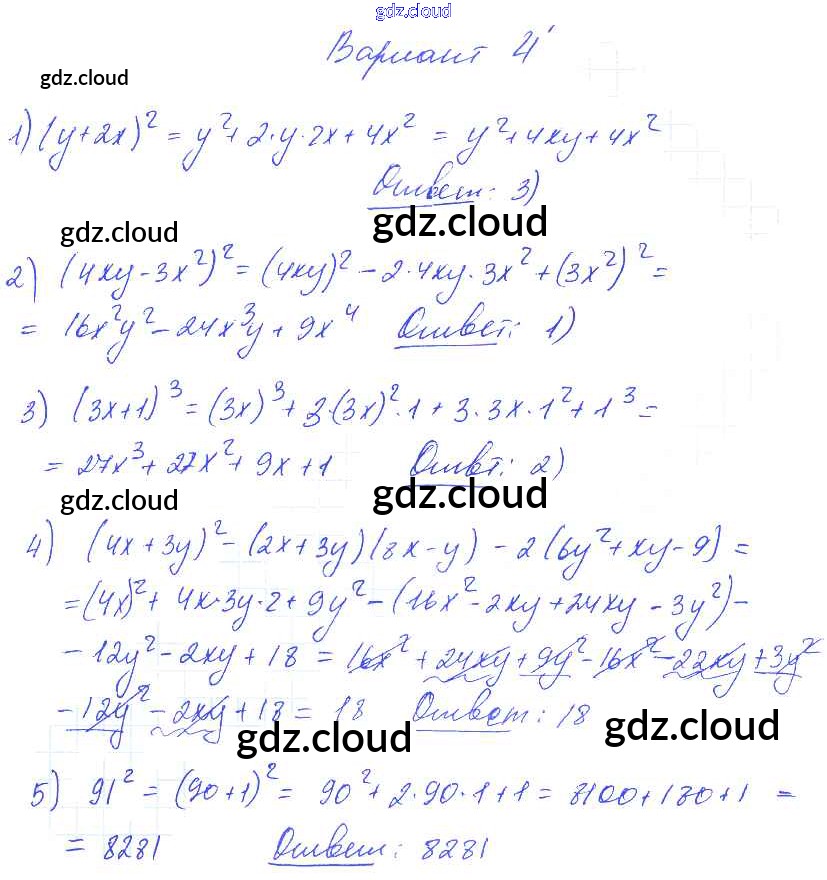 gdz.cloud
Вариант 4
gdz.cloud
1) (y+2x)² = y²+2·y·2x+4x² = y²+4xy+4x²
Ответ: 3)
gdz.cloud gdz.cloud
2) (4xy-3x²)² = (4xy)² - 2·4xy·3x² + (3x²)² =
= 16x²y² - 24x³y + 9x⁴ Ответ: 1)
3) (3x+1)³ = (3x)³ + 3·(3x)²·1 + 3·3x·1² + 1³ =
= 27x³ + 27x² + 9x + 1 Ответ: 2)
gdz.cloud gdz.cloud
4) (4x+3y)² - (2x+3y)(8x-y) - 2(6y²+xy-9) =
= (4x)² + 4x·3y·2 + 9y² - (16x² - 2xy + 24xy - 3y²) -
- 12y² - 2xy + 18 = 16x² + 24xy + 9y² - 16x² - 22xy + 3y²
- 12y² - 2xy + 18 = 18 Ответ: 18
gdz.cloud gdz.cloud
5) 91² = (90+1)² = 90² + 2·90·1 + 1 = 8100 + 180 + 1 =
= 8281 Ответ: 8281